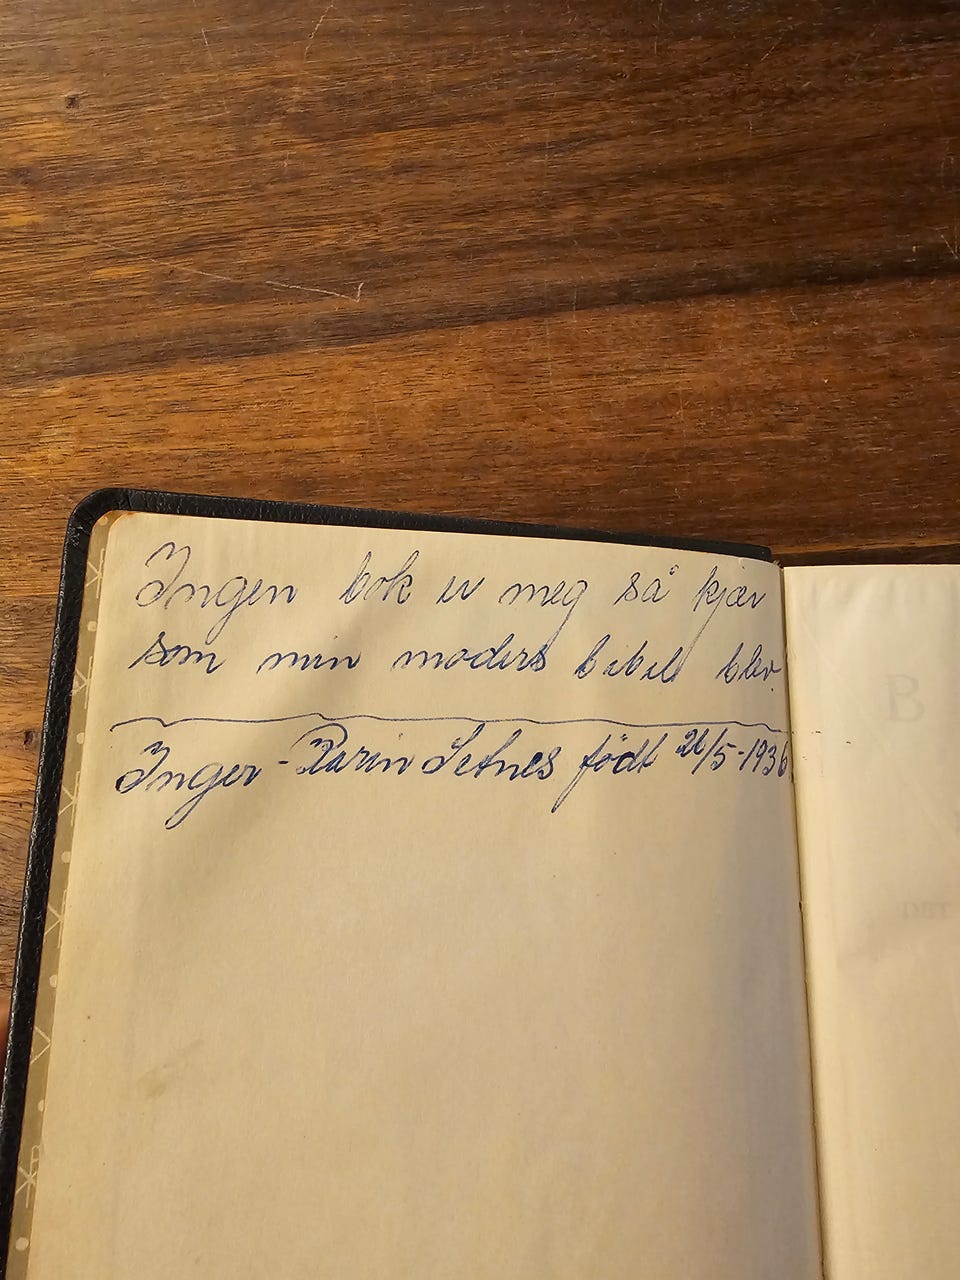 Ingen bok er meg så kjær
som min moders bibel blev.
Inger-Karin Setnes födt 26/5-1936
B
DET